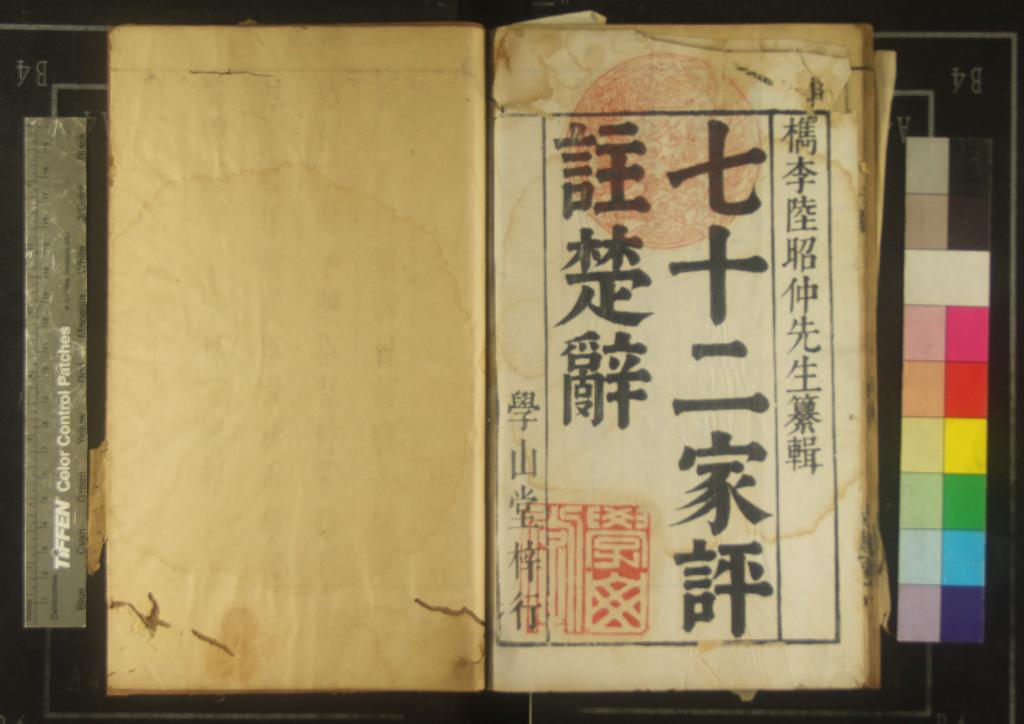 檇李陸昭仲先生纂輯
七十二家評
註楚辭
學山堂梓行
B4
B4
TIFFEN Color Control Patches
Blue
Cyan
Green
Yellow
Red
Magenta
White
3/Color
Black